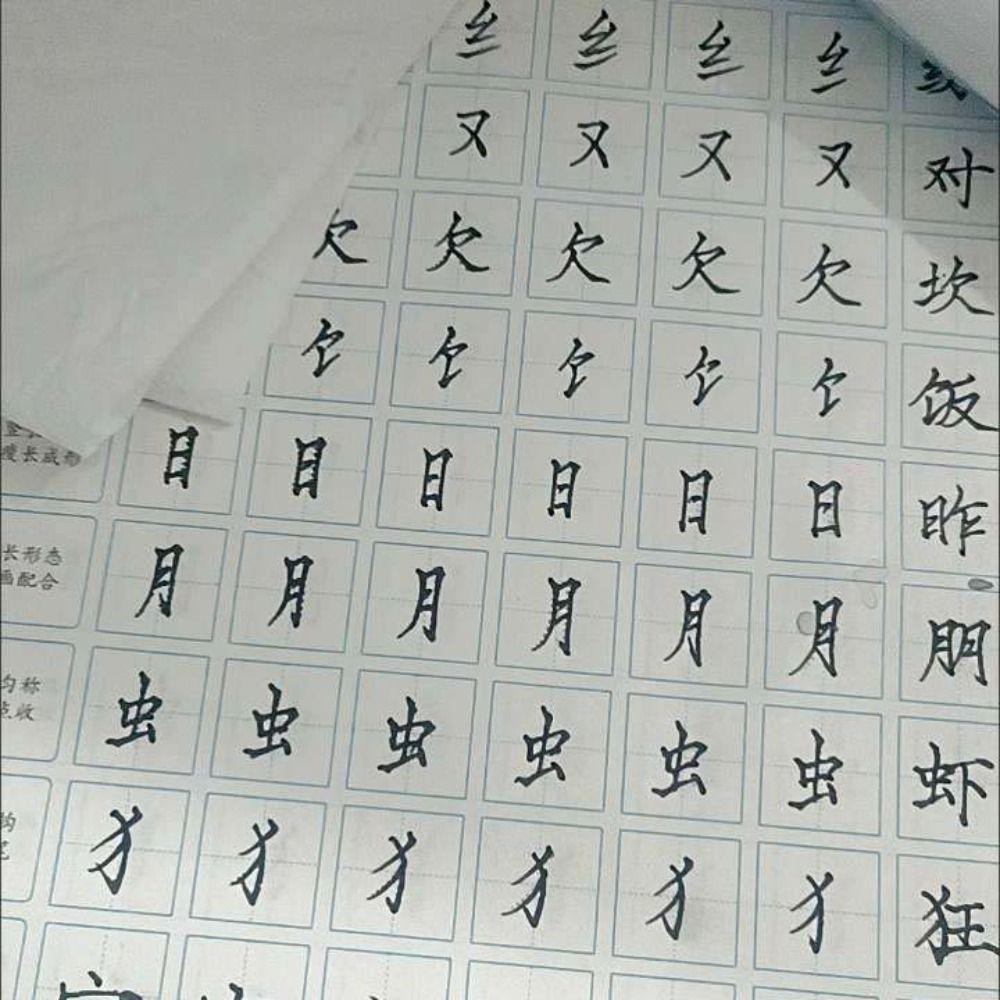 纟 纟 纟 纟
又 又 又 又 对
欠 欠 欠 欠 欠 坎
饣 饣 饣 饣 饣 饭
瘦长成形 日 日 日 日 日 日 昨
长形态
画配合 月 月 月 月 月 月 朋
匀称
收 虫 虫 虫 虫 虫 虫 虾
钩 犭 犭 犭 犭 犭 犭 狂